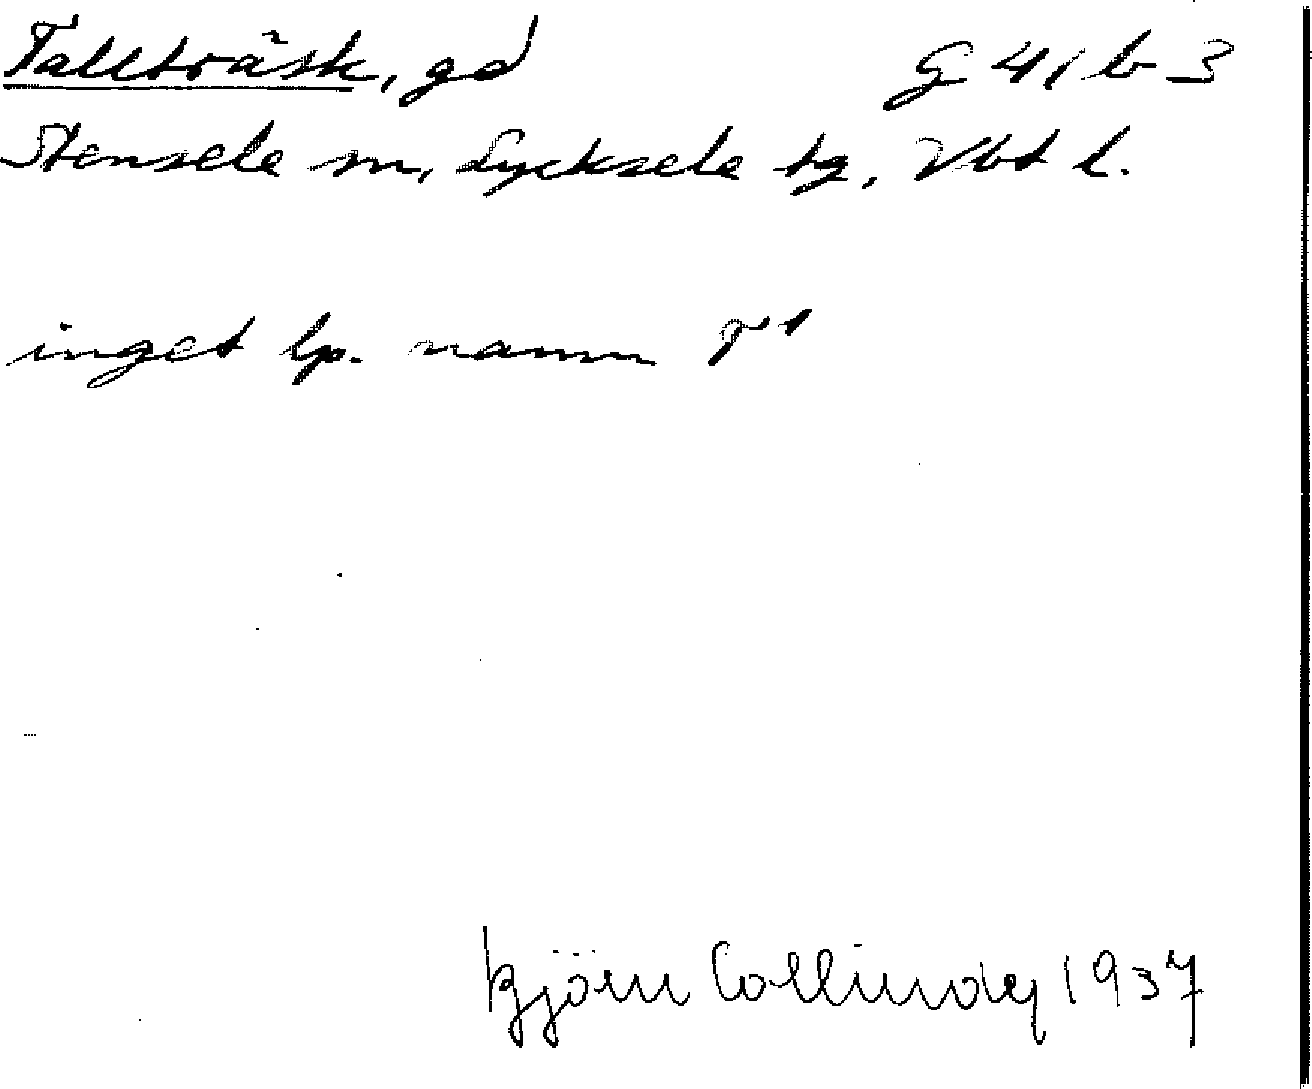 Tallträsk, gd G 41 b 3
Stensele sn, Lycksele tg, Vbt l.
inget lp. namn
Björn Collinder 1937